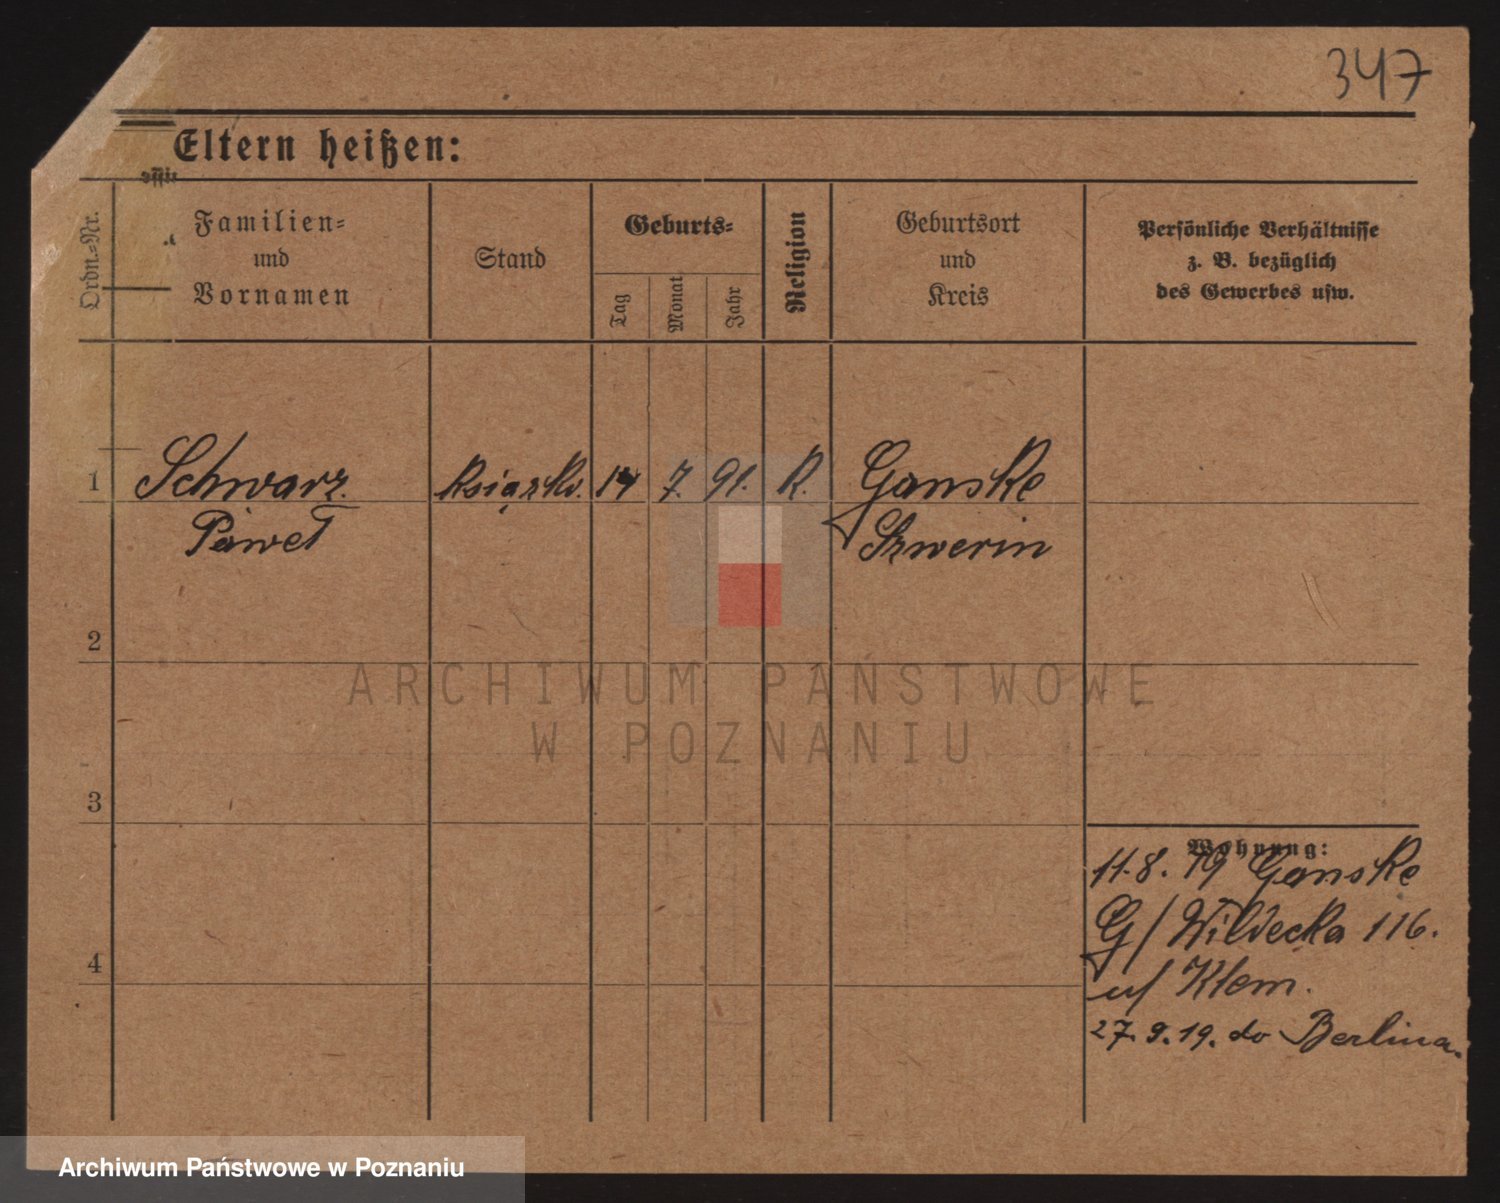 347
Eltern heißen:
Ordn.-Nr.
Familien-
und
Vornamen
Stand
Geburts-
Tag
Monat
Jahr
Religion
Geburtsort
und
Kreis
Persönliche Verhältnisse
z. B. bezüglich
des Gewerbes usw.
1
Schwarz
Paweł
Książkw.
14
7.
91.
R.
Ganske
Szwerin
2
3
4
Wohnung:
11.8.19 Ganske
G/ Wildecka 116.
u/ Klem.
27.9.19. do Berlina.
ARCHIWUM PAŃSTWOWE
W POZNANIU
Archiwum Państwowe w Poznaniu